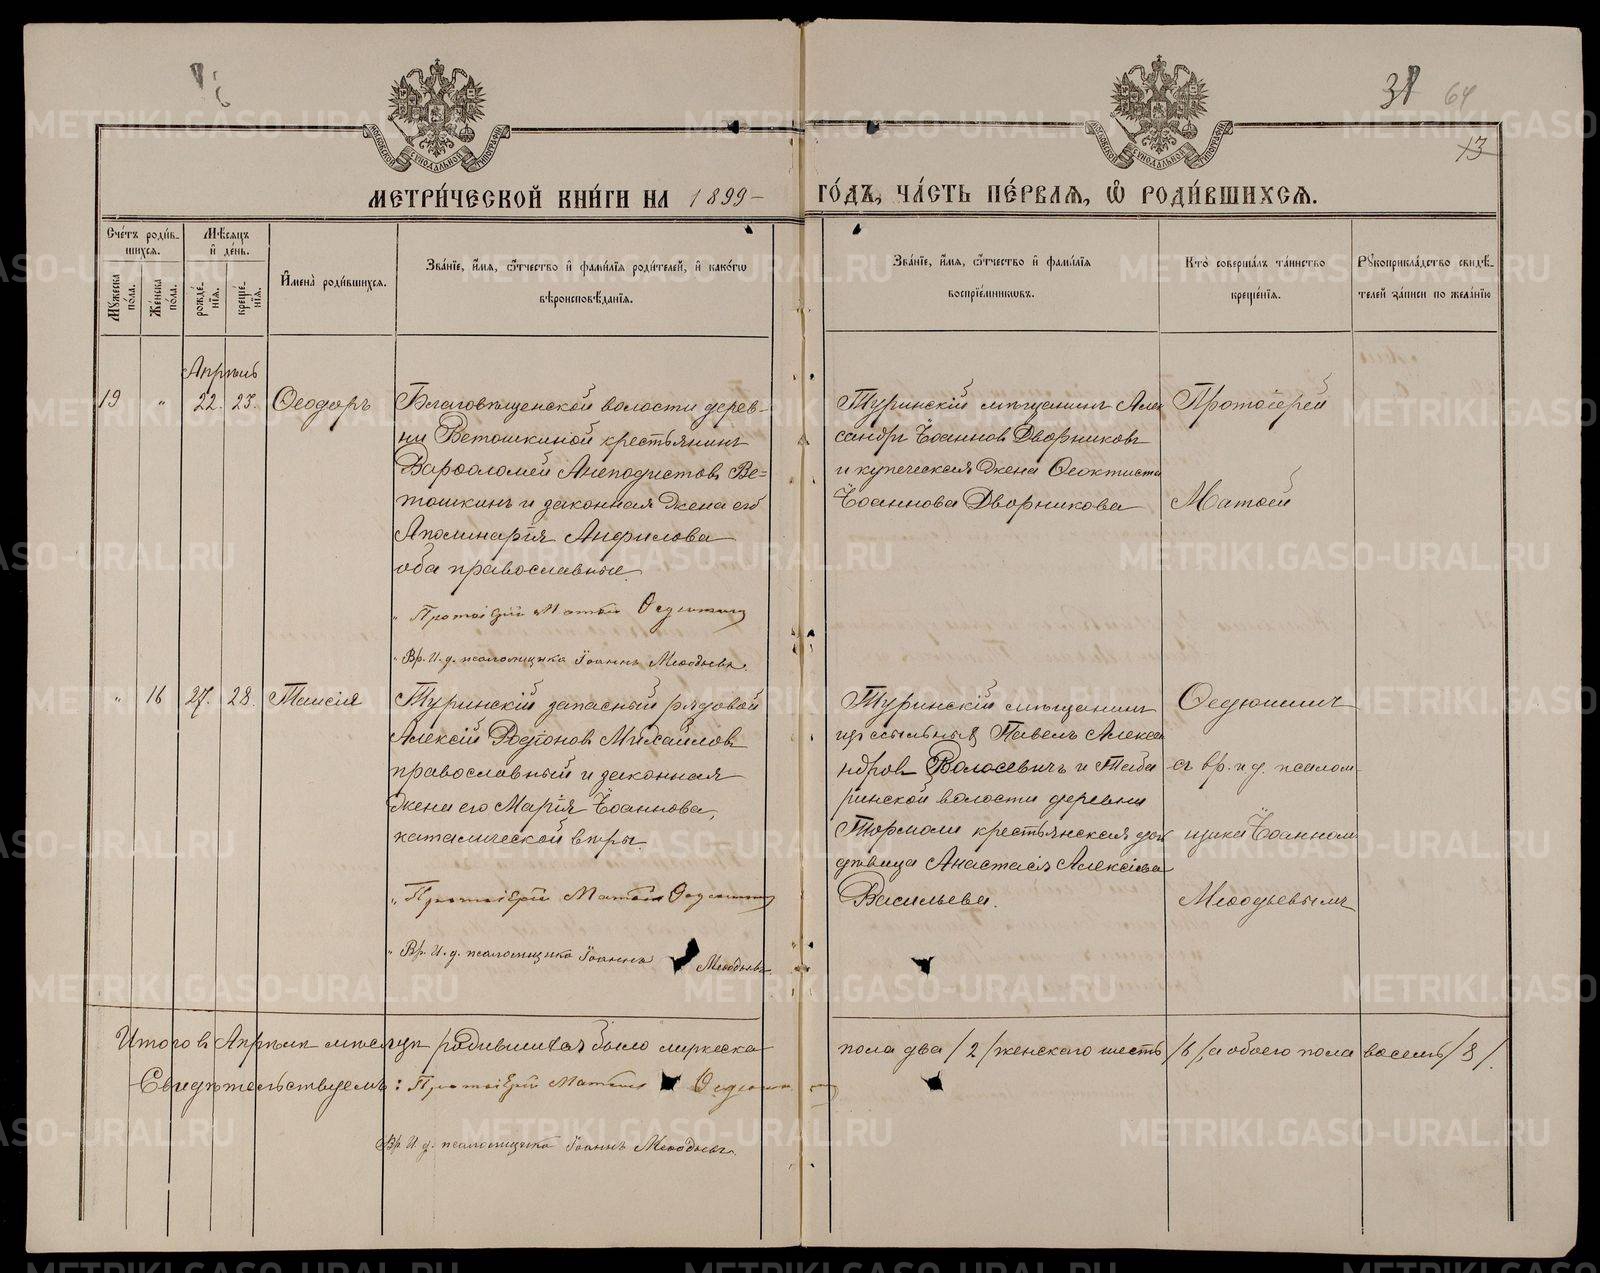 31 64
13
МОСКОВСКОЙ СѴНОДАЛЬНОЙ ТИПОГРАФІИ
МОСКОВСКОЙ СѴНОДАЛЬНОЙ ТИПОГРАФІИ
МЕТРИ́ЧЕСКОЙ КНИ́ГИ НА 1899 ГО́ДЪ, ЧА́СТЬ ПЕ́РВАЯ, Ѡ РОДИ́ВШИХСЯ.
Сче́тъ роди́в-
шихся.
Мꙋ́жеска по́ла.
Же́нска по́ла.
Мѣ́сяцъ
и де́нь.
рожде́-
нїя.
креще́-
нїя.
Имена̀ роди́вшихся.
Зва́нїе, и́мя, ѻ́тчество и фами́лїя роди́телей, и како́гѡ
вѣроисповѣ́данїя.
Зва́нїе, и́мя, ѻ́тчество и фами́лїя
воспрїе́мниковъ.
Кто̀ соверша́лъ та́инство
креще́нїя.
Рꙋкоприкла́дство свидѣ́-
телей за́писи по жела́нїю
Апрѣль
19 " 22. 23. Ѳеодоръ
Благовѣщенской волости дерев-
ни Ветошкиной крестьянинъ
Варѳоломей Анеподистовъ Ве-
тошкинъ и законная жена его
Аполинарія Анфилова
оба православные.
Протоіерей Матѳій Ѳедюшинъ
Вр. И. д. псаломщика Іоаннъ Меѳодьевъ.
Туринскій мѣщанинъ Алек
сандръ Іоанновъ Дворниковъ
и купеческая жена Ѳеоктиста
Іоаннова Дворникова
Протоіерей
Матѳей
" 16 27. 28. Таисія
Туринскій запасный рядовой
Алексій Родіоновъ Михайловъ
православный и законная
жена его Марія Іоаннова,
католической вѣры.
Протоіерей Матѳій Ѳедюшинъ
Вр. И. д. псаломщика Іоаннъ Меѳодьевъ.
Туринскій мѣщанинъ
изъ ссыльныхъ Павелъ Алекса
ндровъ Волосевичъ и Таба
ринской волости деревни
Тормоли крестьянская дѣ
вица Анастасія Алексіева
Васильева.
Ѳедюшинъ
съ вр. и д. псалом-
щика Іоанномъ
Меѳодьевымъ
Итого въ Апрѣлѣ мѣсяцѣ родившихся было мужеска
пола два /2/ женскаго шесть /6/, а обоего пола восемь /8/.
Свидѣтельствуемъ: Протоіерей Матѳій Ѳедюшинъ
Вр. И. д. псаломщика Іоаннъ Меѳодьевъ.
METRIKI.GASO-URAL.RU